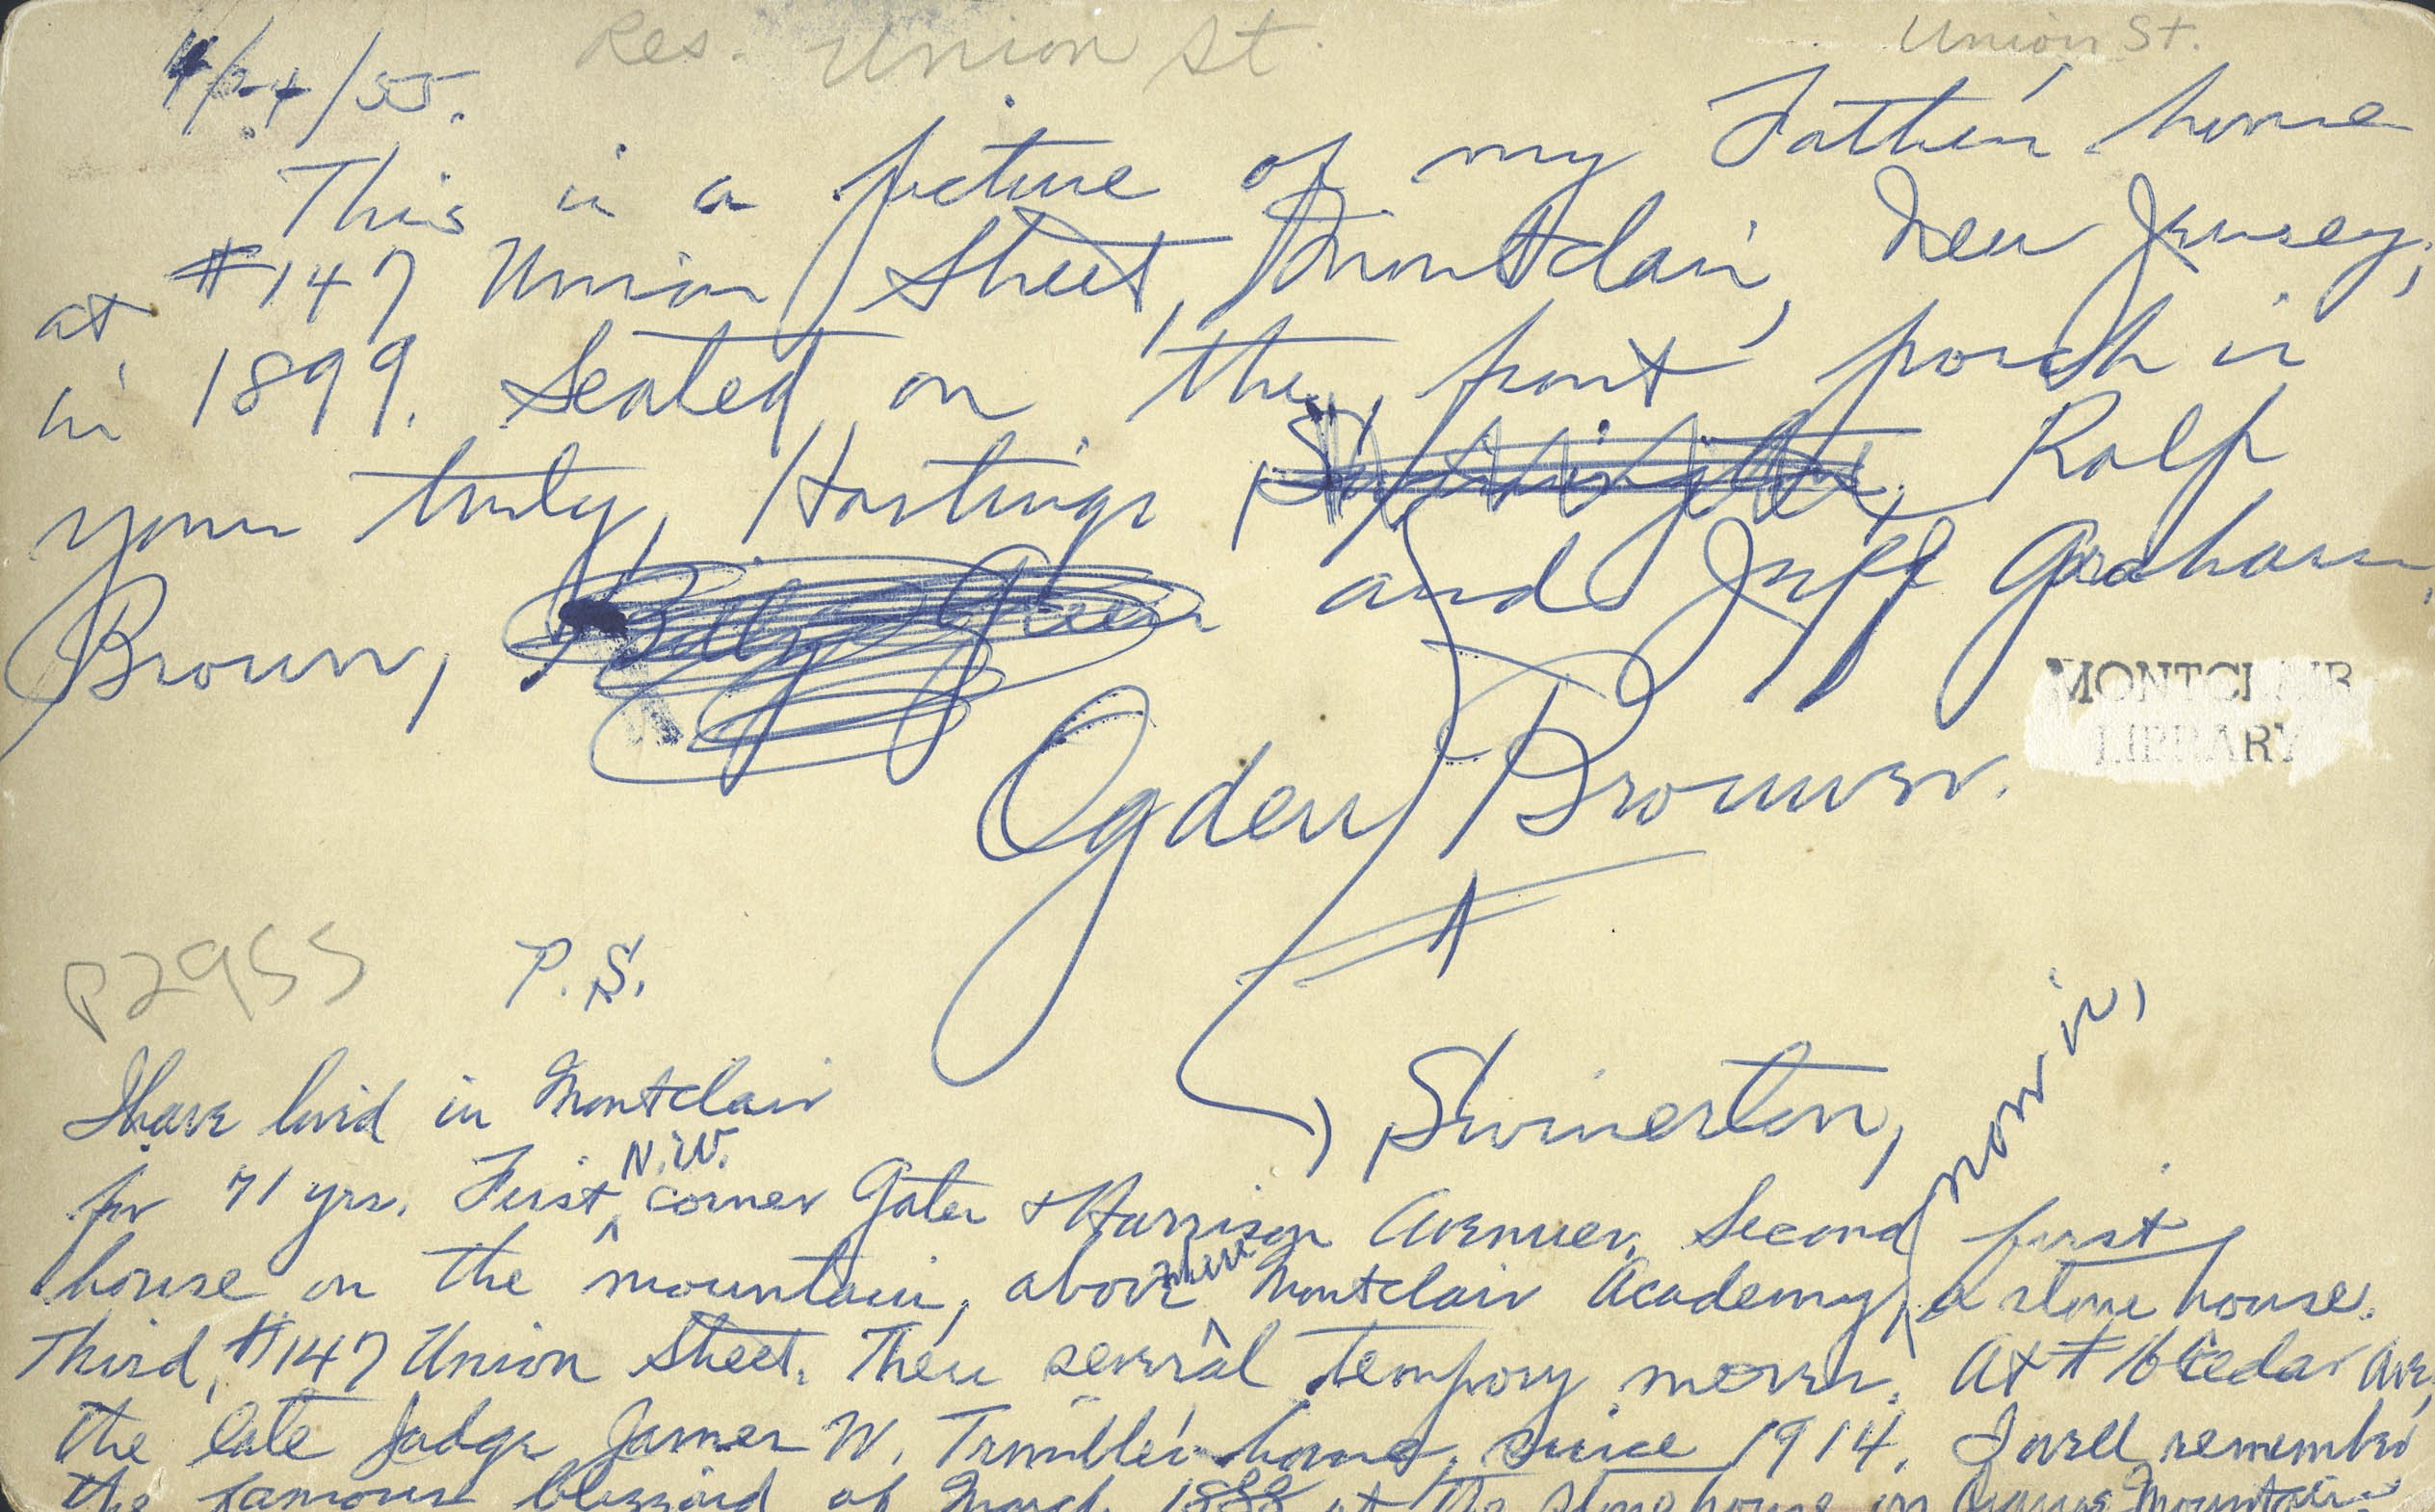 Res. Union St.
Union St.
4/24/55.
This is a picture of my Father's home
at #147 Union Street, Montclair, New Jersey,
in 1899. Seated on the front porch is
yours truly, Hastings Ralph
Brown, and Jeff Graham,
Ogden Brouwer.
MONTCLAIR
LIBRARY
P2955
P.S.
Swinerton,
I have livid in Montclair
for 71 yrs. First, N.W. corner Gates & Harrison Avenues. Second first
house on the mountain, above where Montclair Academy now is, a stone house.
Third, #147 Union Street. Then several tempory moves. At #16 Cedar Ave,
the late Judge James W. Trimble's home, since 1914. I well remember
the famous blizzard of March 1888 at the stone house on Orange Mountain